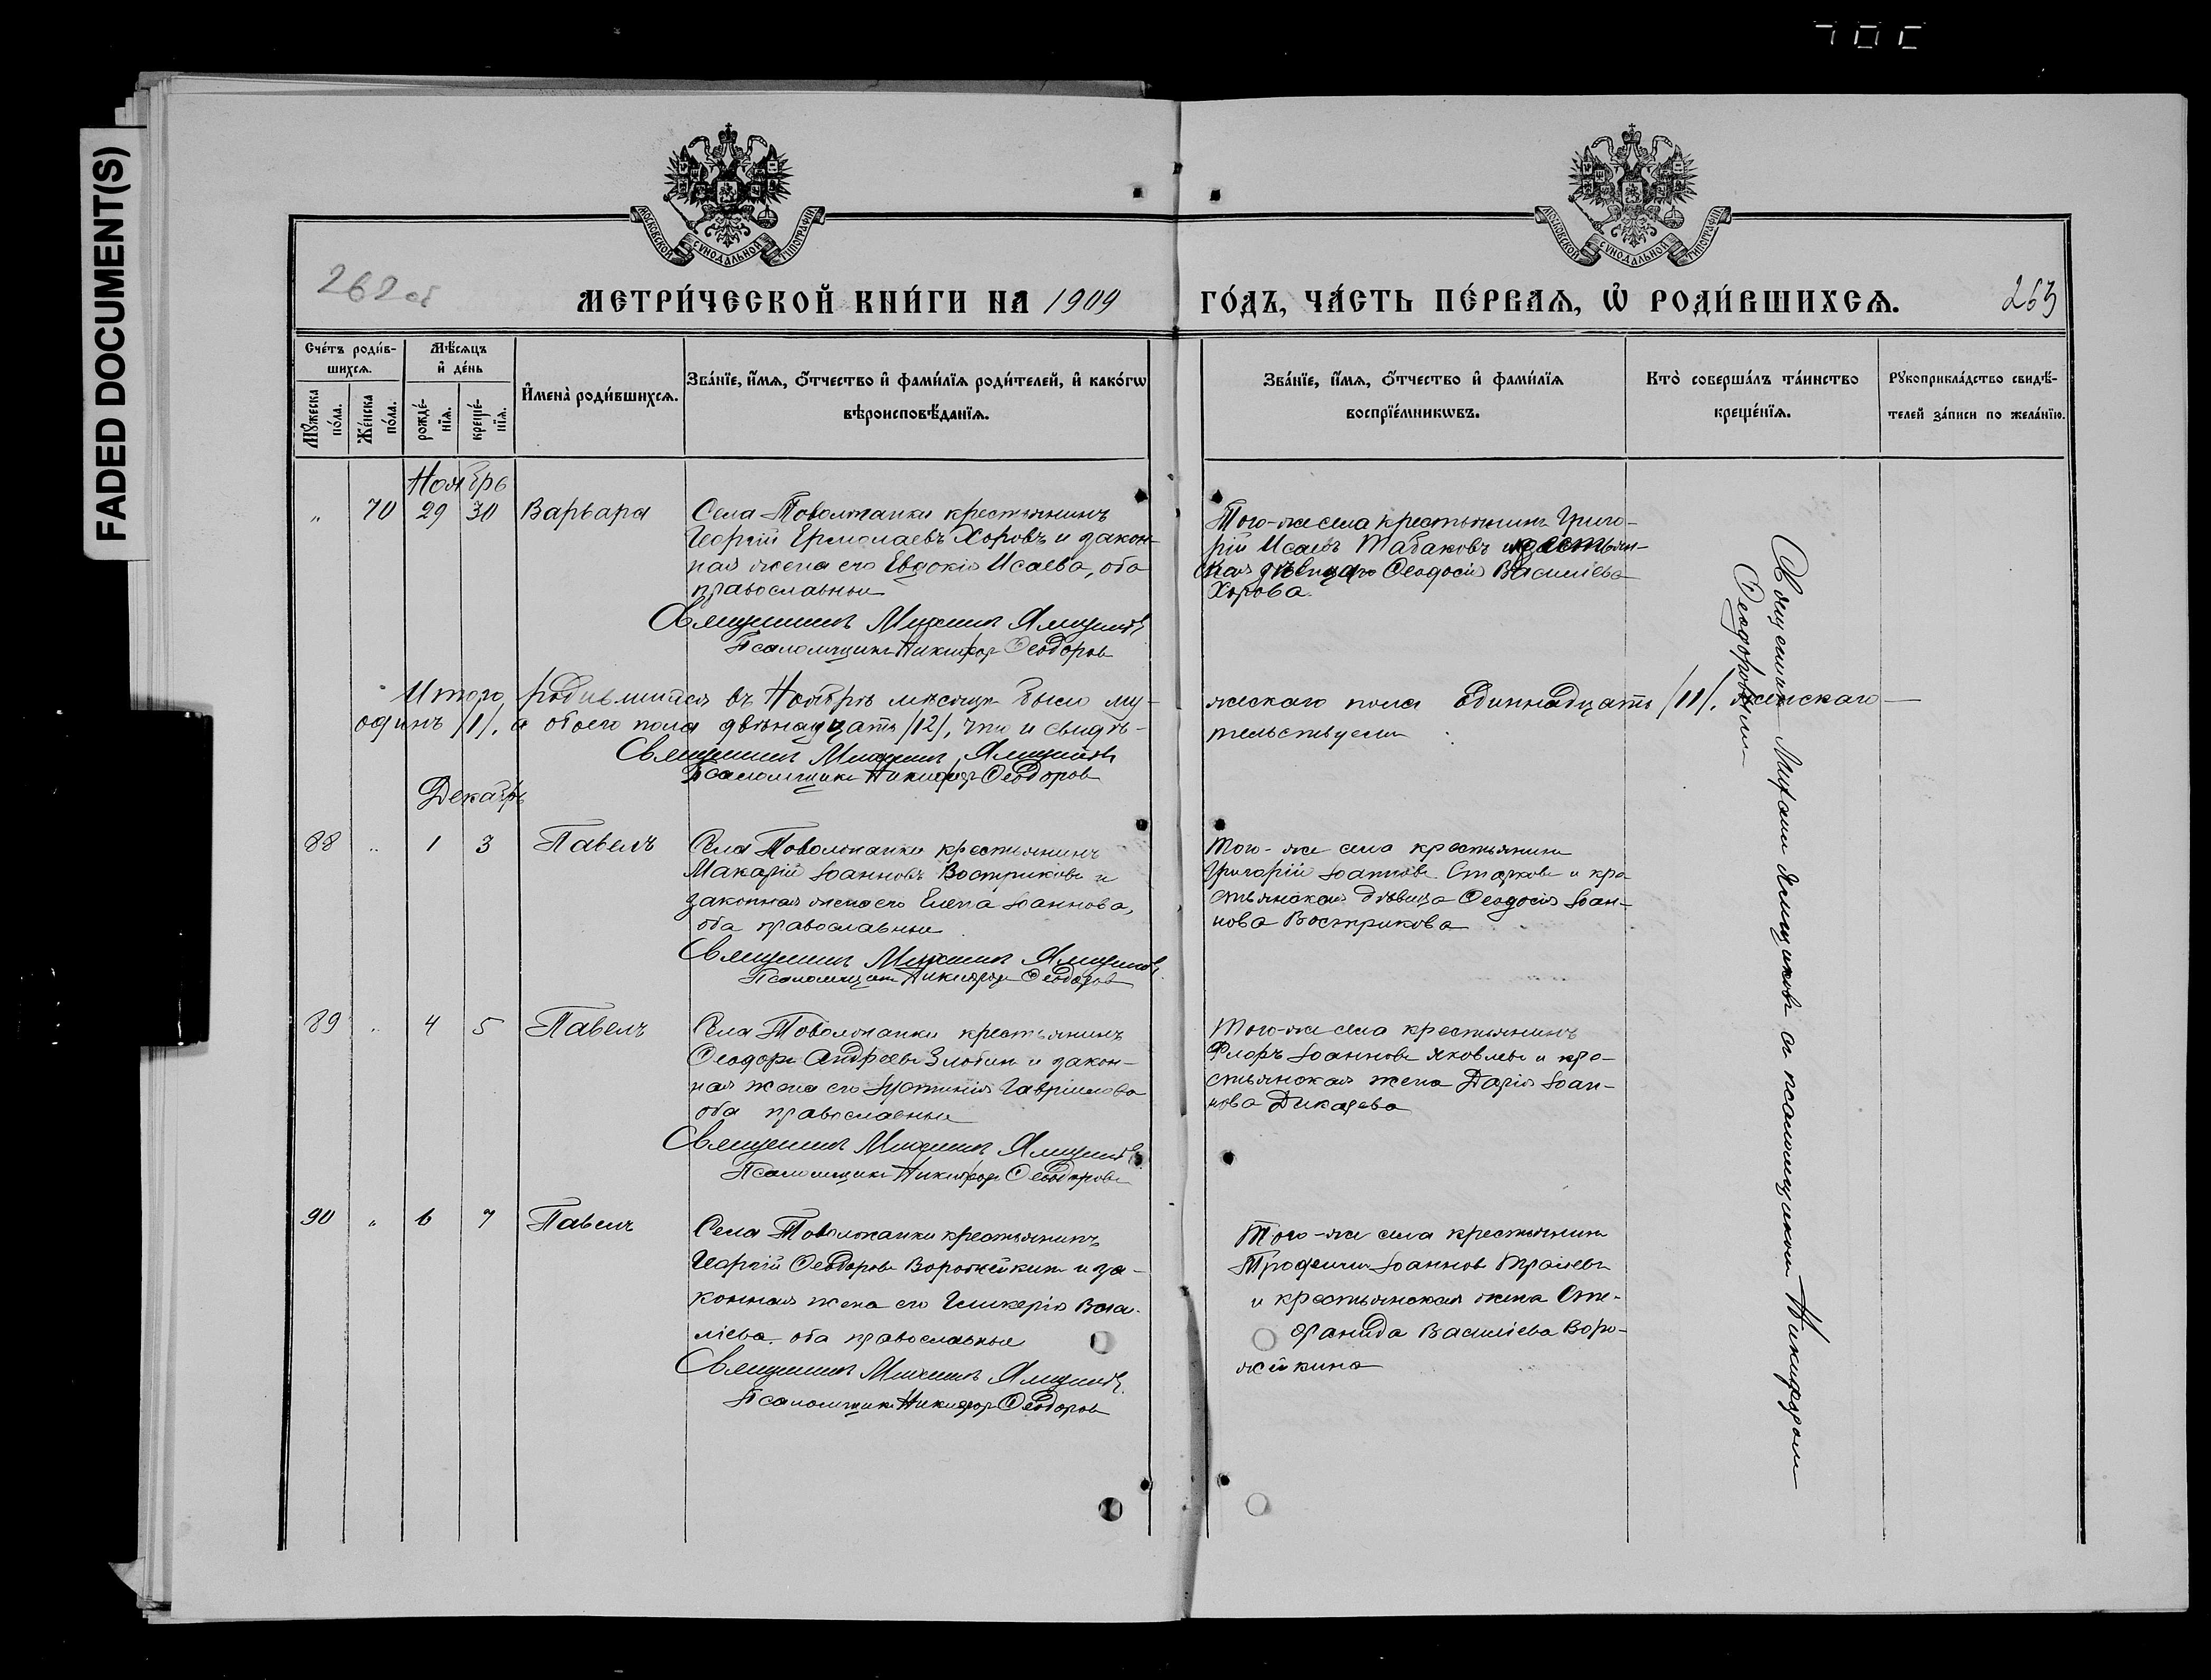 FADED DOCUMENT(S)
МОСКОВСКОЙ СѴНОДАЛЬНОЙ ТИПОГРАФІИ
МОСКОВСКОЙ СѴНОДАЛЬНОЙ ТИПОГРАФІИ
262 об
МЕТРИ́ЧЕСКОЙ КНИ́ГИ НА 1909
ГО́ДЪ, ЧА́СТЬ ПЕ́РВАѦ, Ѡ҆ РОДИ́ВШИХСѦ.
263
Сче́тъ роди́в-
шихсѧ.
Мꙋ́жеска по́ла.
Же́нска по́ла.
Мѣ́сѧцъ
и҆ де́нь
рожде́-
нїѧ.
креще́-
нїѧ.
И҆мена̀ роди́вшихсѧ.
Зва́нїе, и҆́мѧ, ѻ҆́тчество и҆ фами́лїѧ роди́телей, и҆ како́гѡ
вѣроисповѣ́данїѧ.
Зва́нїе, и҆́мѧ, ѻ҆́тчество и҆ фами́лїѧ
воспрїе́мникѡвъ.
Кто̀ соверша́лъ та́инство
креще́нїѧ.
Рꙋкоприкла́дство свидѣ́-
телей за́писи по жела́нїю.
Ноябрь
„ 70 29 30 Варвара
Села Поволжанки крестьянинъ
Георгій Ермолаевъ Хоровъ и закон-
ная жена его Евдокія Исаева, оба
православные
Священникъ Михаилъ Ямщиковъ
Псаломщикъ Никифоръ Ѳеодоровъ
Того-же села крестьянинъ Григо-
рій Исаевъ Табаковъ и крестьян-
ская дѣвица Ѳеодосія Василіева
Хорова.
Итого родившихся въ Ноябрѣ мѣсяцѣ было му-
жескаго пола одиннадцать /11/, женскаго
одинъ /1/, а обоего пола двѣнадцать /12/, что и свидѣ-
тельствуемъ
Священникъ Михаилъ Ямщиковъ
Псаломщикъ Никифоръ Ѳеодоровъ
Декабрь
88 „ 1 3 Павелъ
Села Поволжанки крестьянинъ
Макарій Іоанновъ Востриковъ и
законная жена его Елена Іоаннова,
оба православные
Священникъ Михаилъ Ямщиковъ
Псаломщикъ Никифоръ Ѳеодоровъ
Того-же села крестьянинъ
Григорій Іоанновъ Старковъ и кре-
стьянская дѣвица Ѳеодосія Іоан-
нова Вострикова
89 „ 4 5 Павелъ
Села Поволжанки крестьянинъ
Ѳеодоръ Андреевъ Злобинъ и закон-
ная жена его Іустинія Гавріилова
оба православные
Священникъ Михаилъ Ямщиковъ
Псаломщикъ Никифоръ Ѳеодоровъ
Того-же села крестьянинъ
Флоръ Іоанновъ Яковлевъ и кре-
стьянская жена Дарія Іоан-
нова Дикарева
90 „ 6 7 Павелъ
Села Поволжанки крестьянинъ
Георгій Ѳеодоровъ Ворожейкинъ и за-
конная жена его Гликерія Васи-
ліева, оба православные
Священникъ Михаилъ Ямщиковъ
Псаломщикъ Никифоръ Ѳеодоровъ
Того-же села крестьянинъ
Трофимъ Іоанновъ
и крестьянская жена Сте-
фанида Василіева Воро-
жейкина
Священникъ Михаилъ Ямщиковъ съ псаломщикомъ Никифоромъ
Ѳеодоровымъ